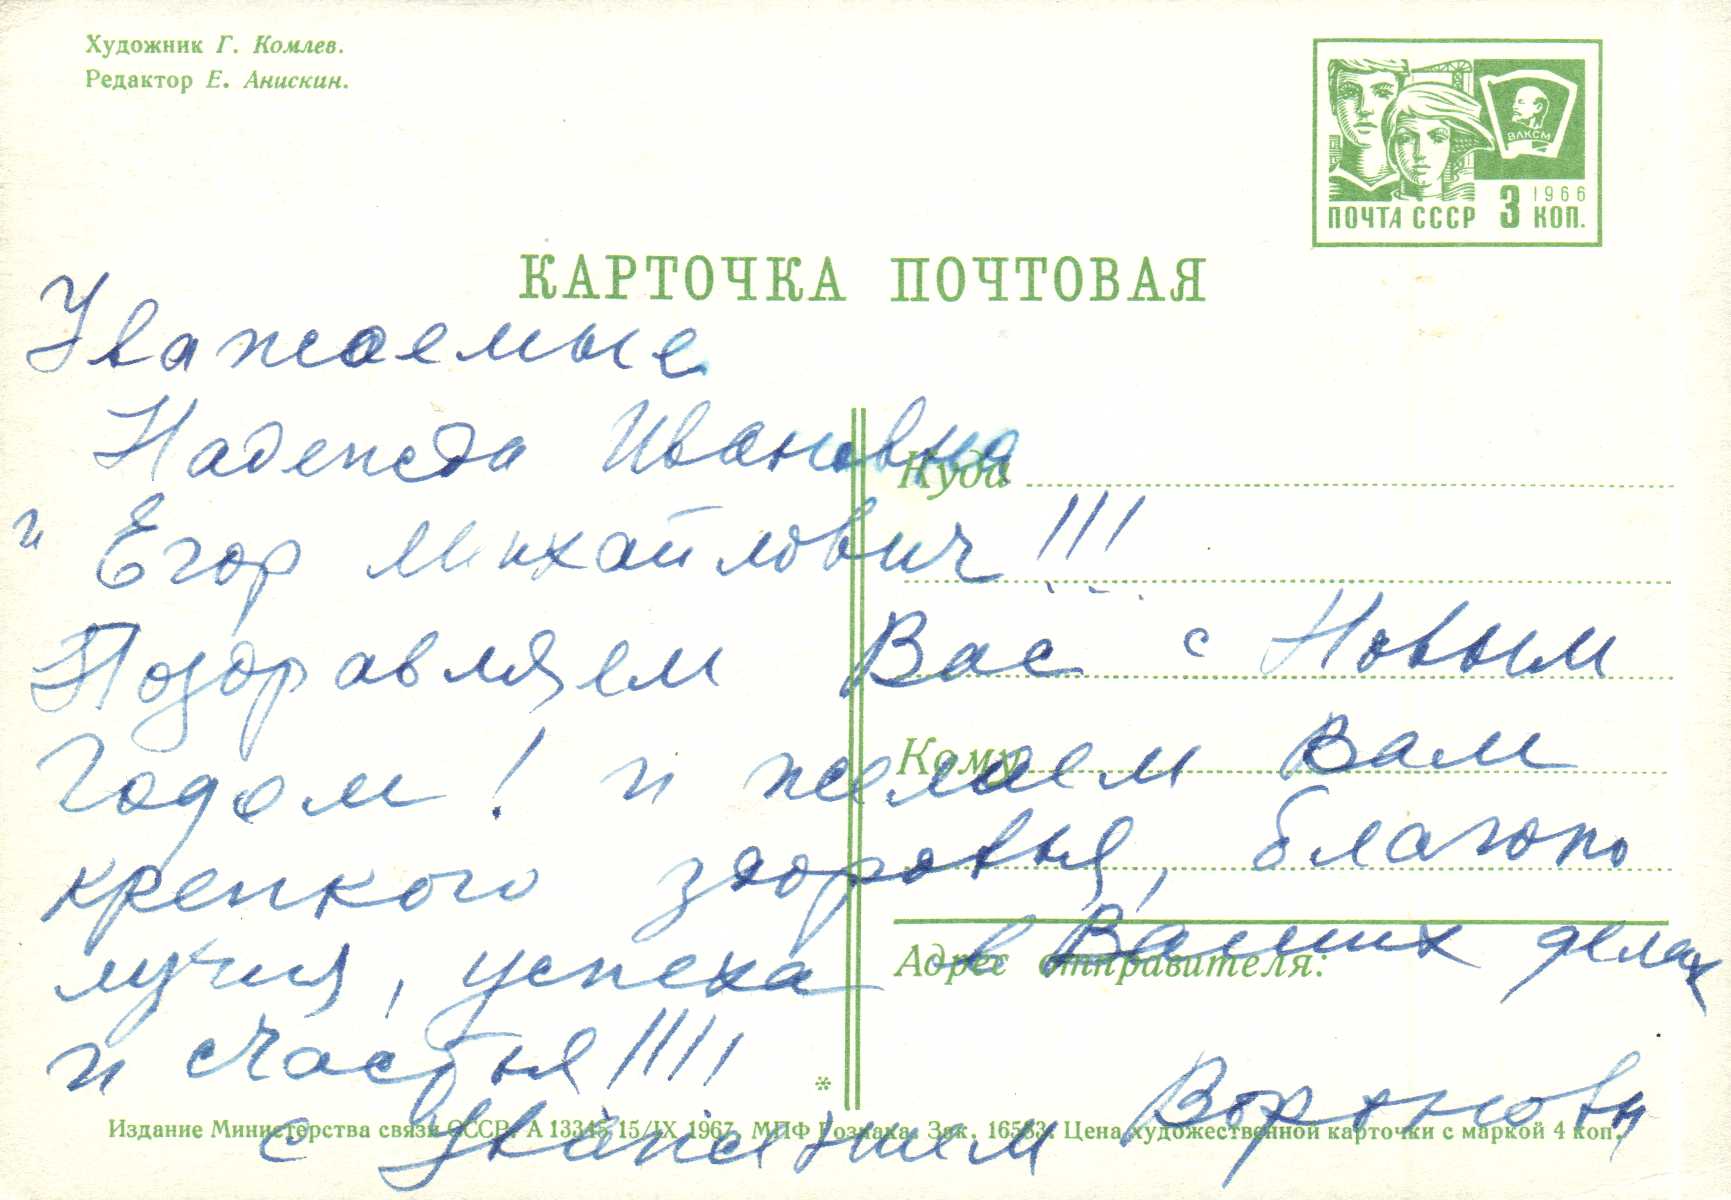 Художник Г. Комлев.
Редактор Е. Анискин.
ВЛКСМ
1966
ПОЧТА СССР 3 КОП.
КАРТОЧКА ПОЧТОВАЯ
Уважаемые
Надежда Ивановна
и Егор Михайлович!!!
Поздравляем Вас с Новым
Годом! и желаем Вам
крепкого здоровья, благопо
лучия, успеха в Ваших делах
и счастья!!!!
с уважением Вороновы
Куда
Кому
Адрес отправителя:
*
Издание Министерства связи СССР. А 13345 15/IX 1967. МПФ Гознака. Зак. 16583. Цена художественной карточки с маркой 4 коп.